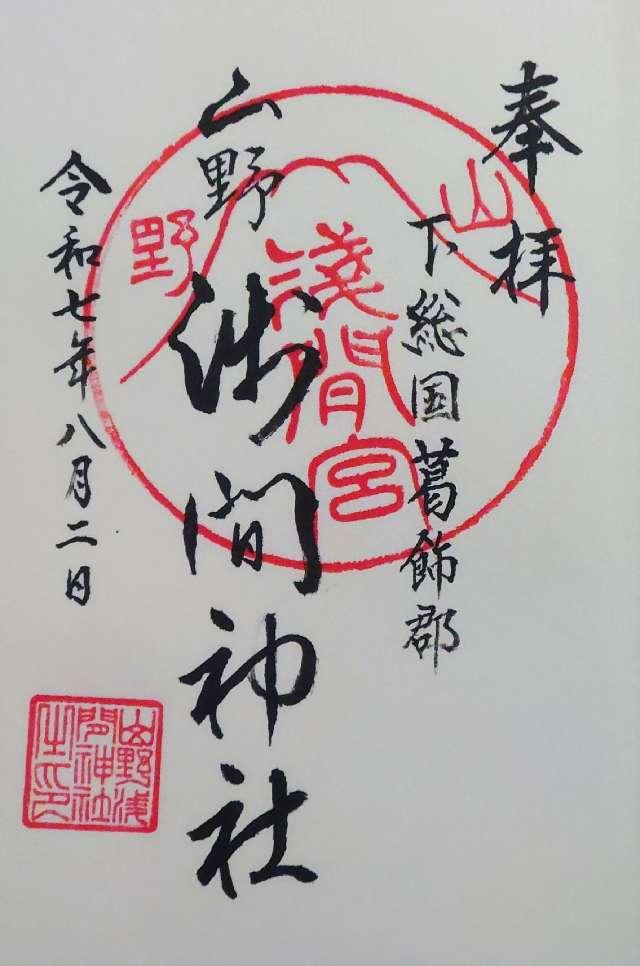 奉拝
下総国葛飾郡
山野
浅間神社
令和七年八月二日
山
野
淺間宮
山野浅
間神社
之印